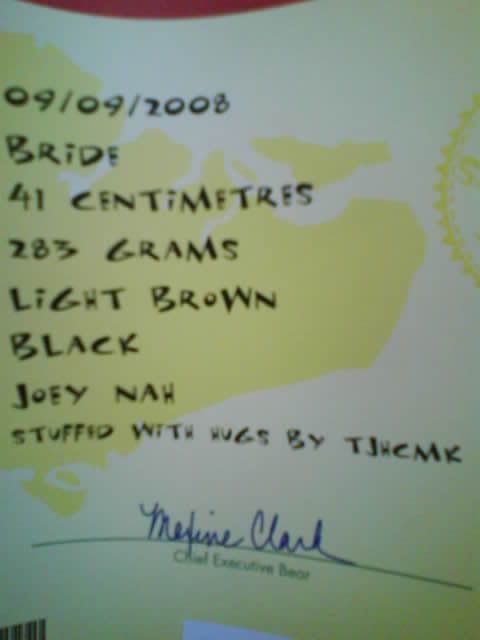 09/09/2008
BRiDE
41 CENTiMETRES
283 GRAMS
LiGHT BROWN
BLACK
JOEY NAH
STUFFED WiTH HUGS BY TJHCMK
Maxine Clark
Chief Executive Bear